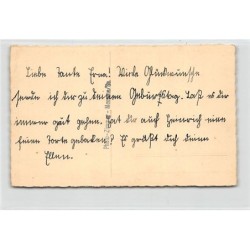 Liebe Tante Erna. Viele Glückwünsche
sende ich dir zu deinem Geburtstag. Laß es dir
immer gut gehen. Hat dir auch Heinrich eine
feine Torte gebacken? Es grüßt dich deine
Ellen.